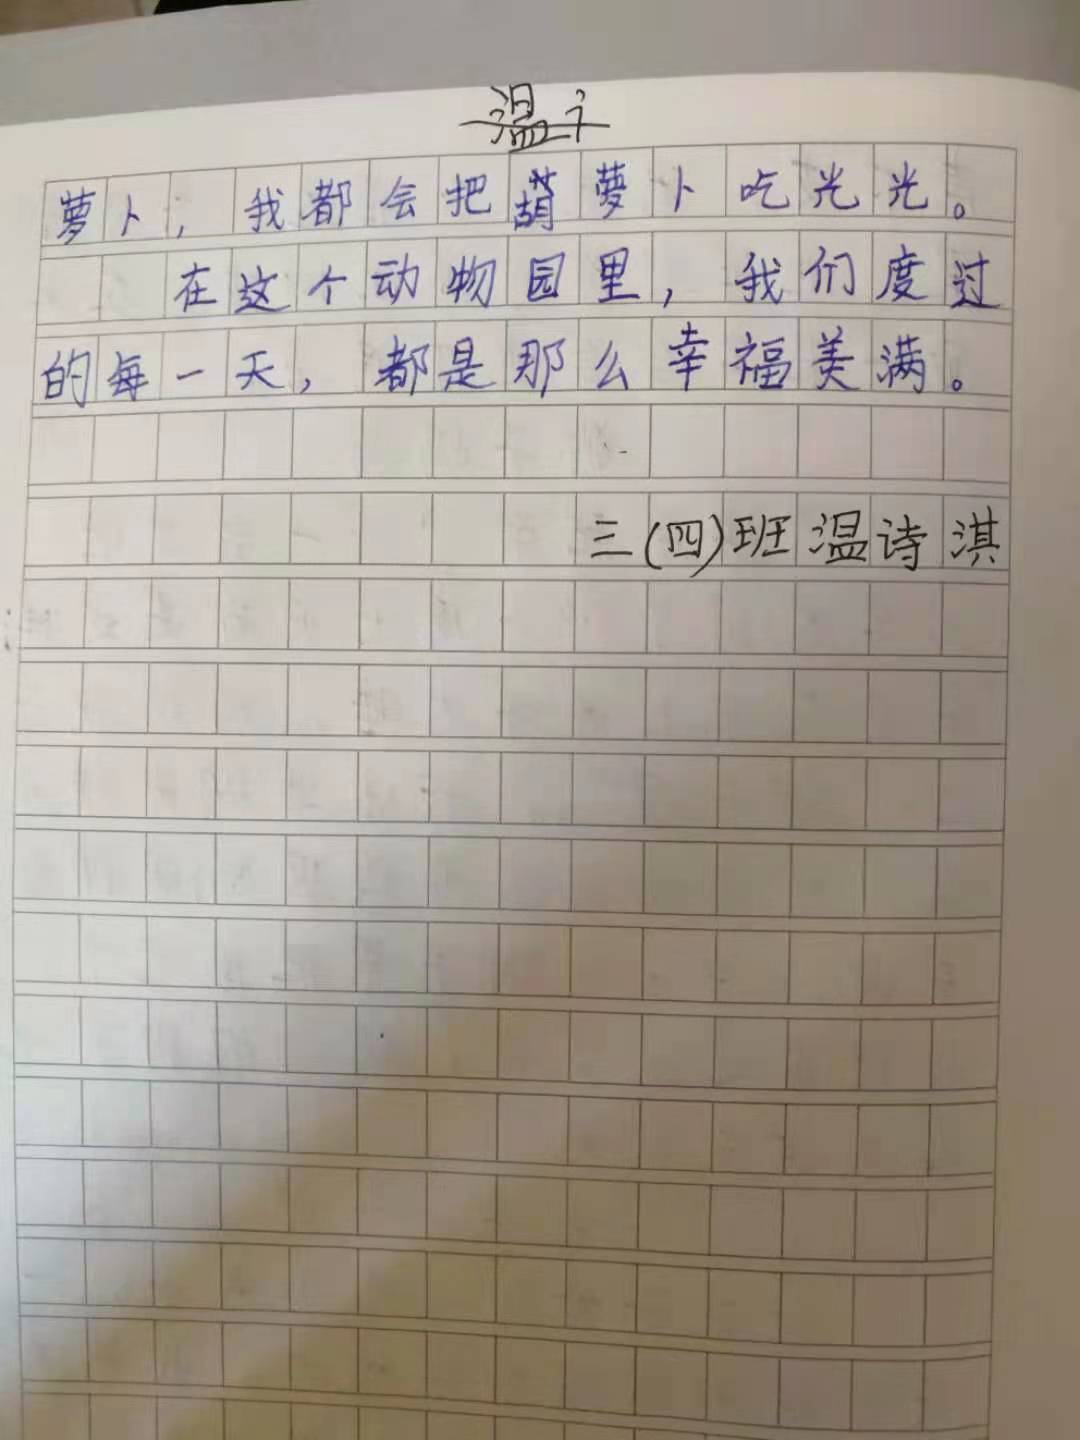 萝卜，我都会把葫萝卜吃光光。
在这个动物园里，我们度过
的每一天，都是那么幸福美满。
三(四)班温诗淇